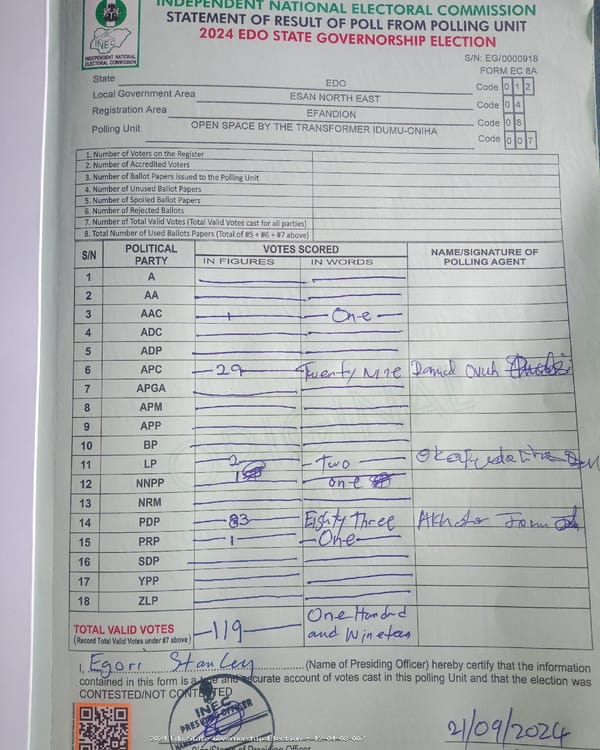 INDEPENDENT NATIONAL ELECTORAL COMMISSION
STATEMENT OF RESULT OF POLL FROM POLLING UNIT
2024 EDO STATE GOVERNORSHIP ELECTION
INEC
INDEPENDENT NATIONAL ELECTORAL COMMISSION
S/N: EG/0000918
FORM EC 8A
State EDO Code 0 1 2
Local Government Area ESAN NORTH EAST Code 0 4
Registration Area EFANDION Code 0 8
Polling Unit OPEN SPACE BY THE TRANSFORMER IDUMU-ONIHA Code 0 0 7
1. Number of Voters on the Register
2. Number of Accredited Voters
3. Number of Ballot Papers Issued to the Polling Unit
4. Number of Unused Ballot Papers
5. Number of Spoiled Ballot Papers
6. Number of Rejected Ballots
7. Number of Total Valid Votes (Total Valid Votes cast for all parties)
8. Total Number of Used Ballots Papers (Total of #5 + #6 + #7 above)
S/N POLITICAL PARTY VOTES SCORED NAME/SIGNATURE OF POLLING AGENT
IN FIGURES IN WORDS
1 A
2 AA
3 AAC 1 One
4 ADC
5 ADP
6 APC 29 Twenty Nine
7 APGA
8 APM
9 APP
10 BP
11 LP 2 Two
12 NNPP 1 one
13 NRM
14 PDP 83 Eighty Three
15 PRP 1 One
16 SDP
17 YPP
18 ZLP
TOTAL VALID VOTES 119 One Hundred
(Record Total Valid Votes under #7 above) and Nineteen
I, Egori Stanley (Name of Presiding Officer) hereby certify that the information
contained in this form is a true and accurate account of votes cast in this polling Unit and that the election was
CONTESTED/NOT CONTESTED
INEC
PRESIDING OFFICER
21/09/2024
2024 Edo State Governorship Election - 12-04-08-007